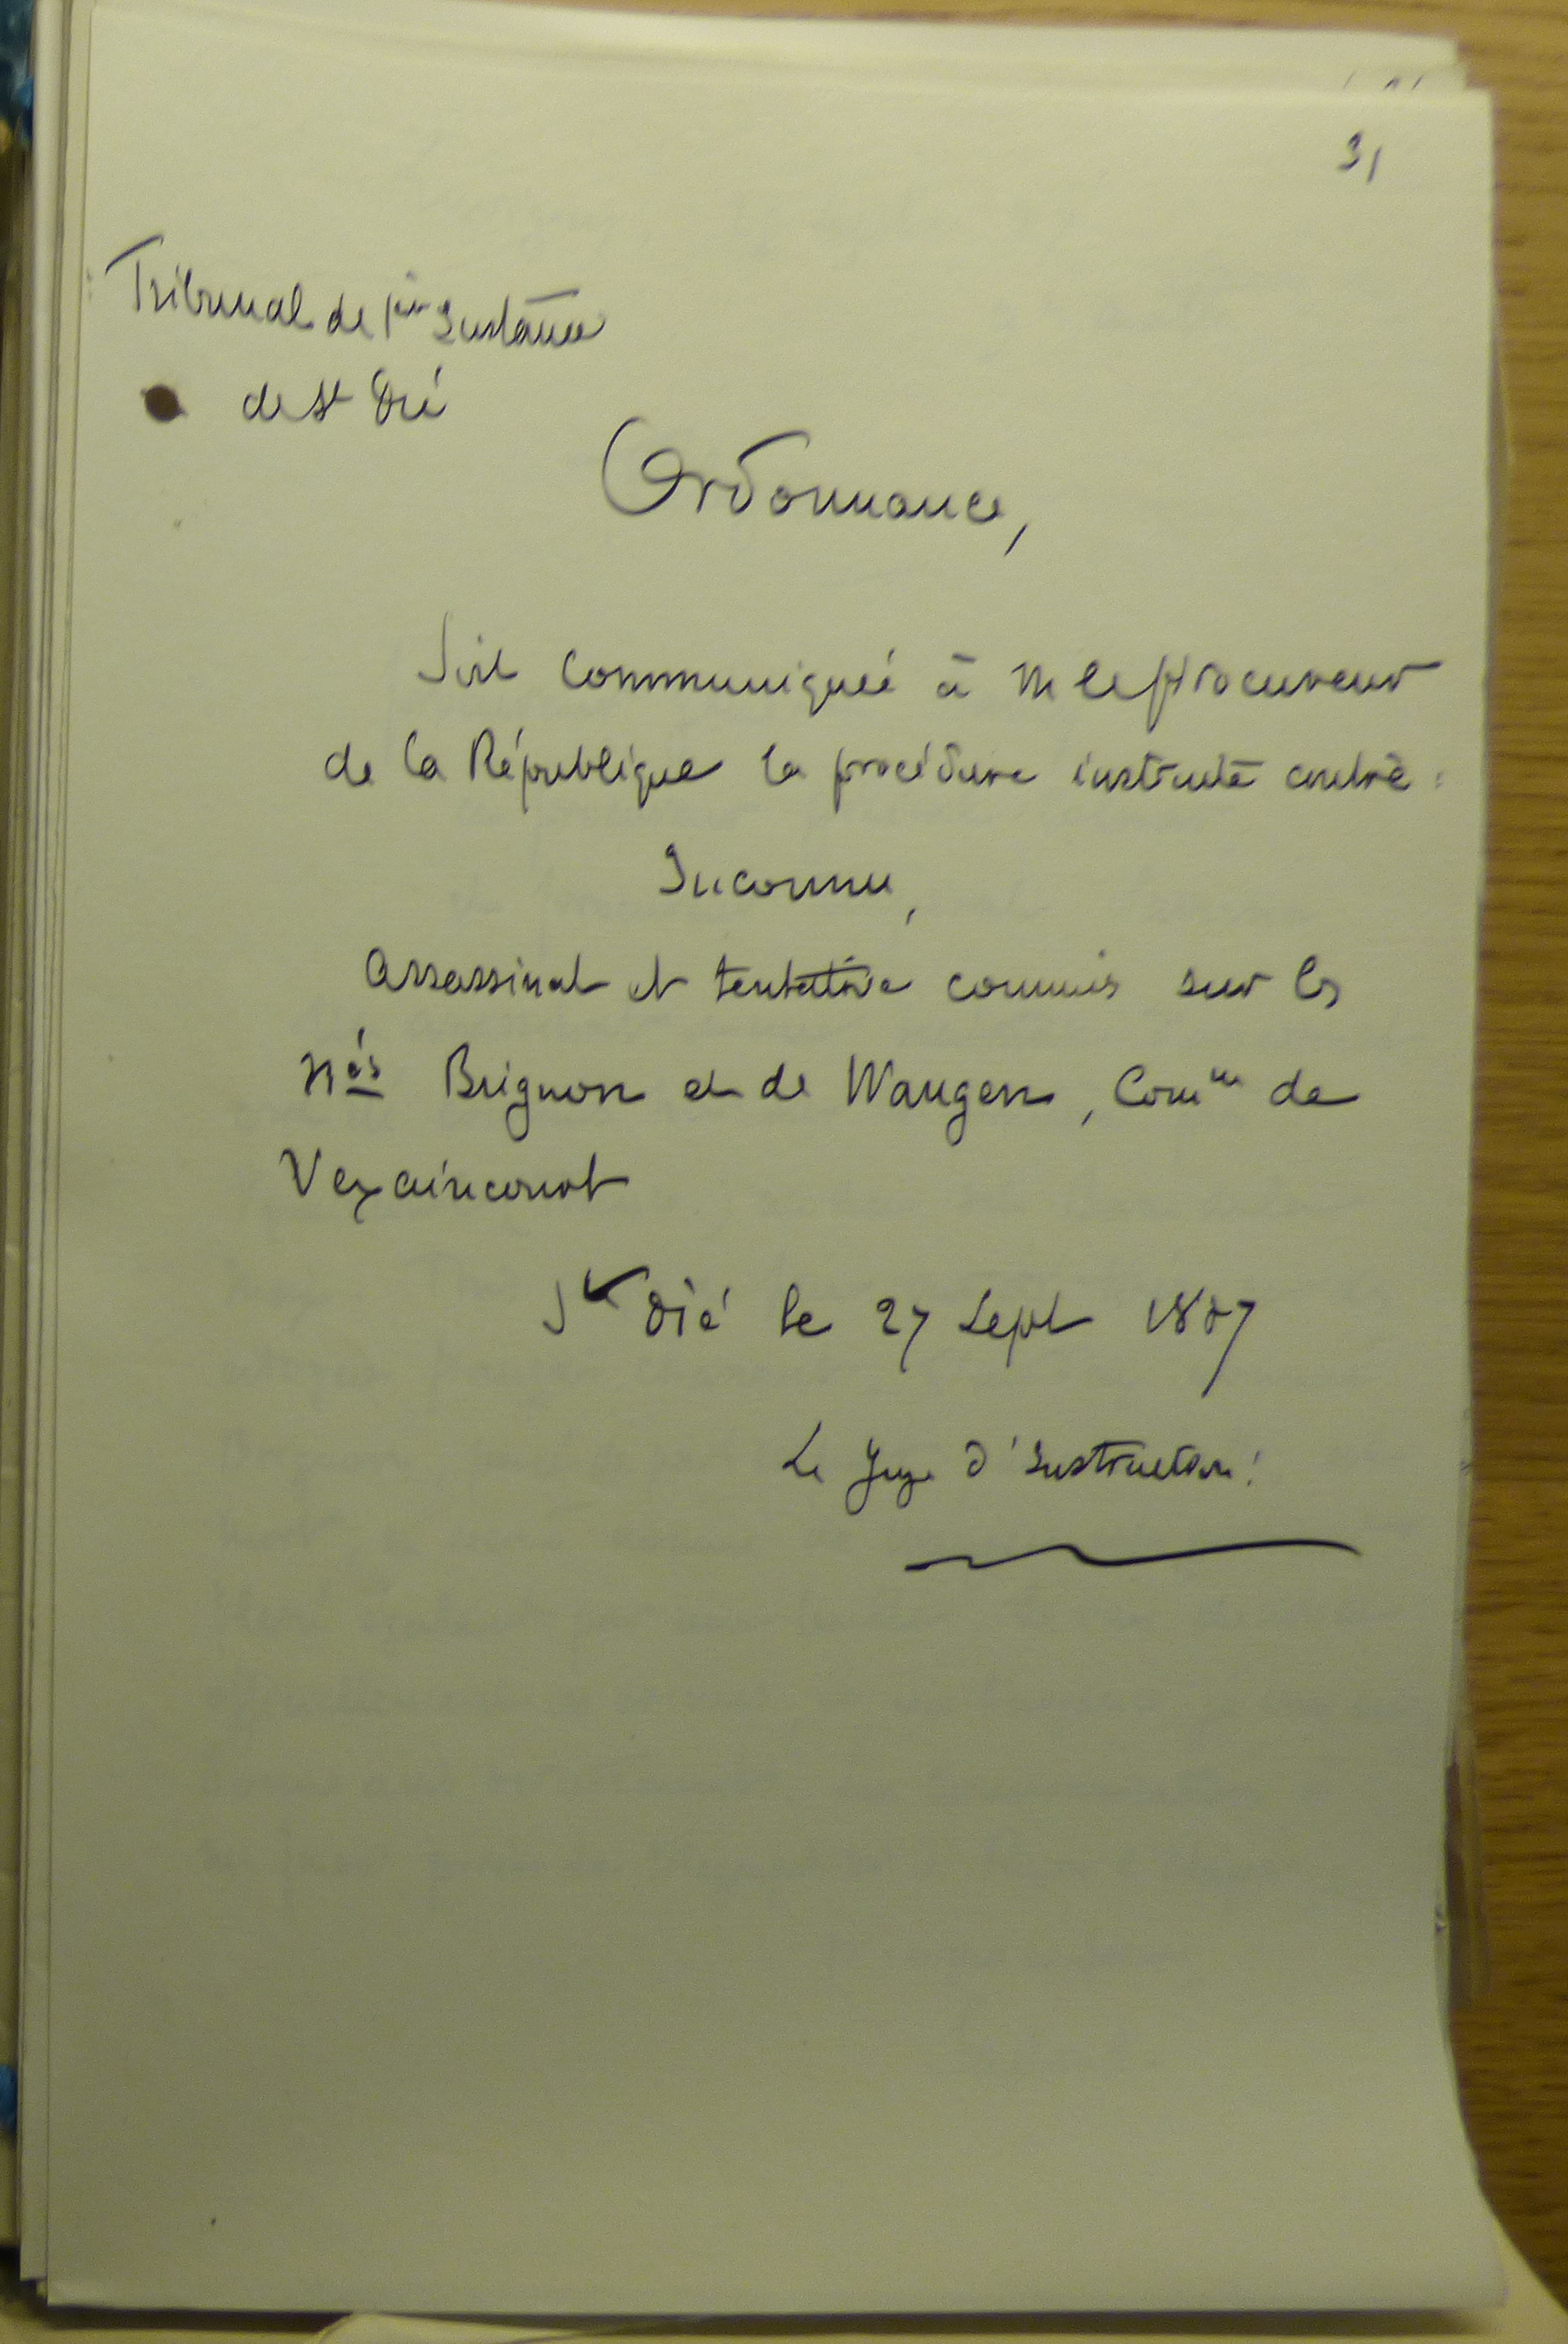 31
Tribunal de 1ère Instance
de St Dié
Ordonnance,
Soit communiquée à M le Procureur
de la République la procédure instruite contre :
Inconnu,
Assassinat et tentative commis sur les
nés Brignon et de Wangen, Comne de
Vexaincourt
St Dié le 27 Sept 1887
Le Juge d'Instruction :